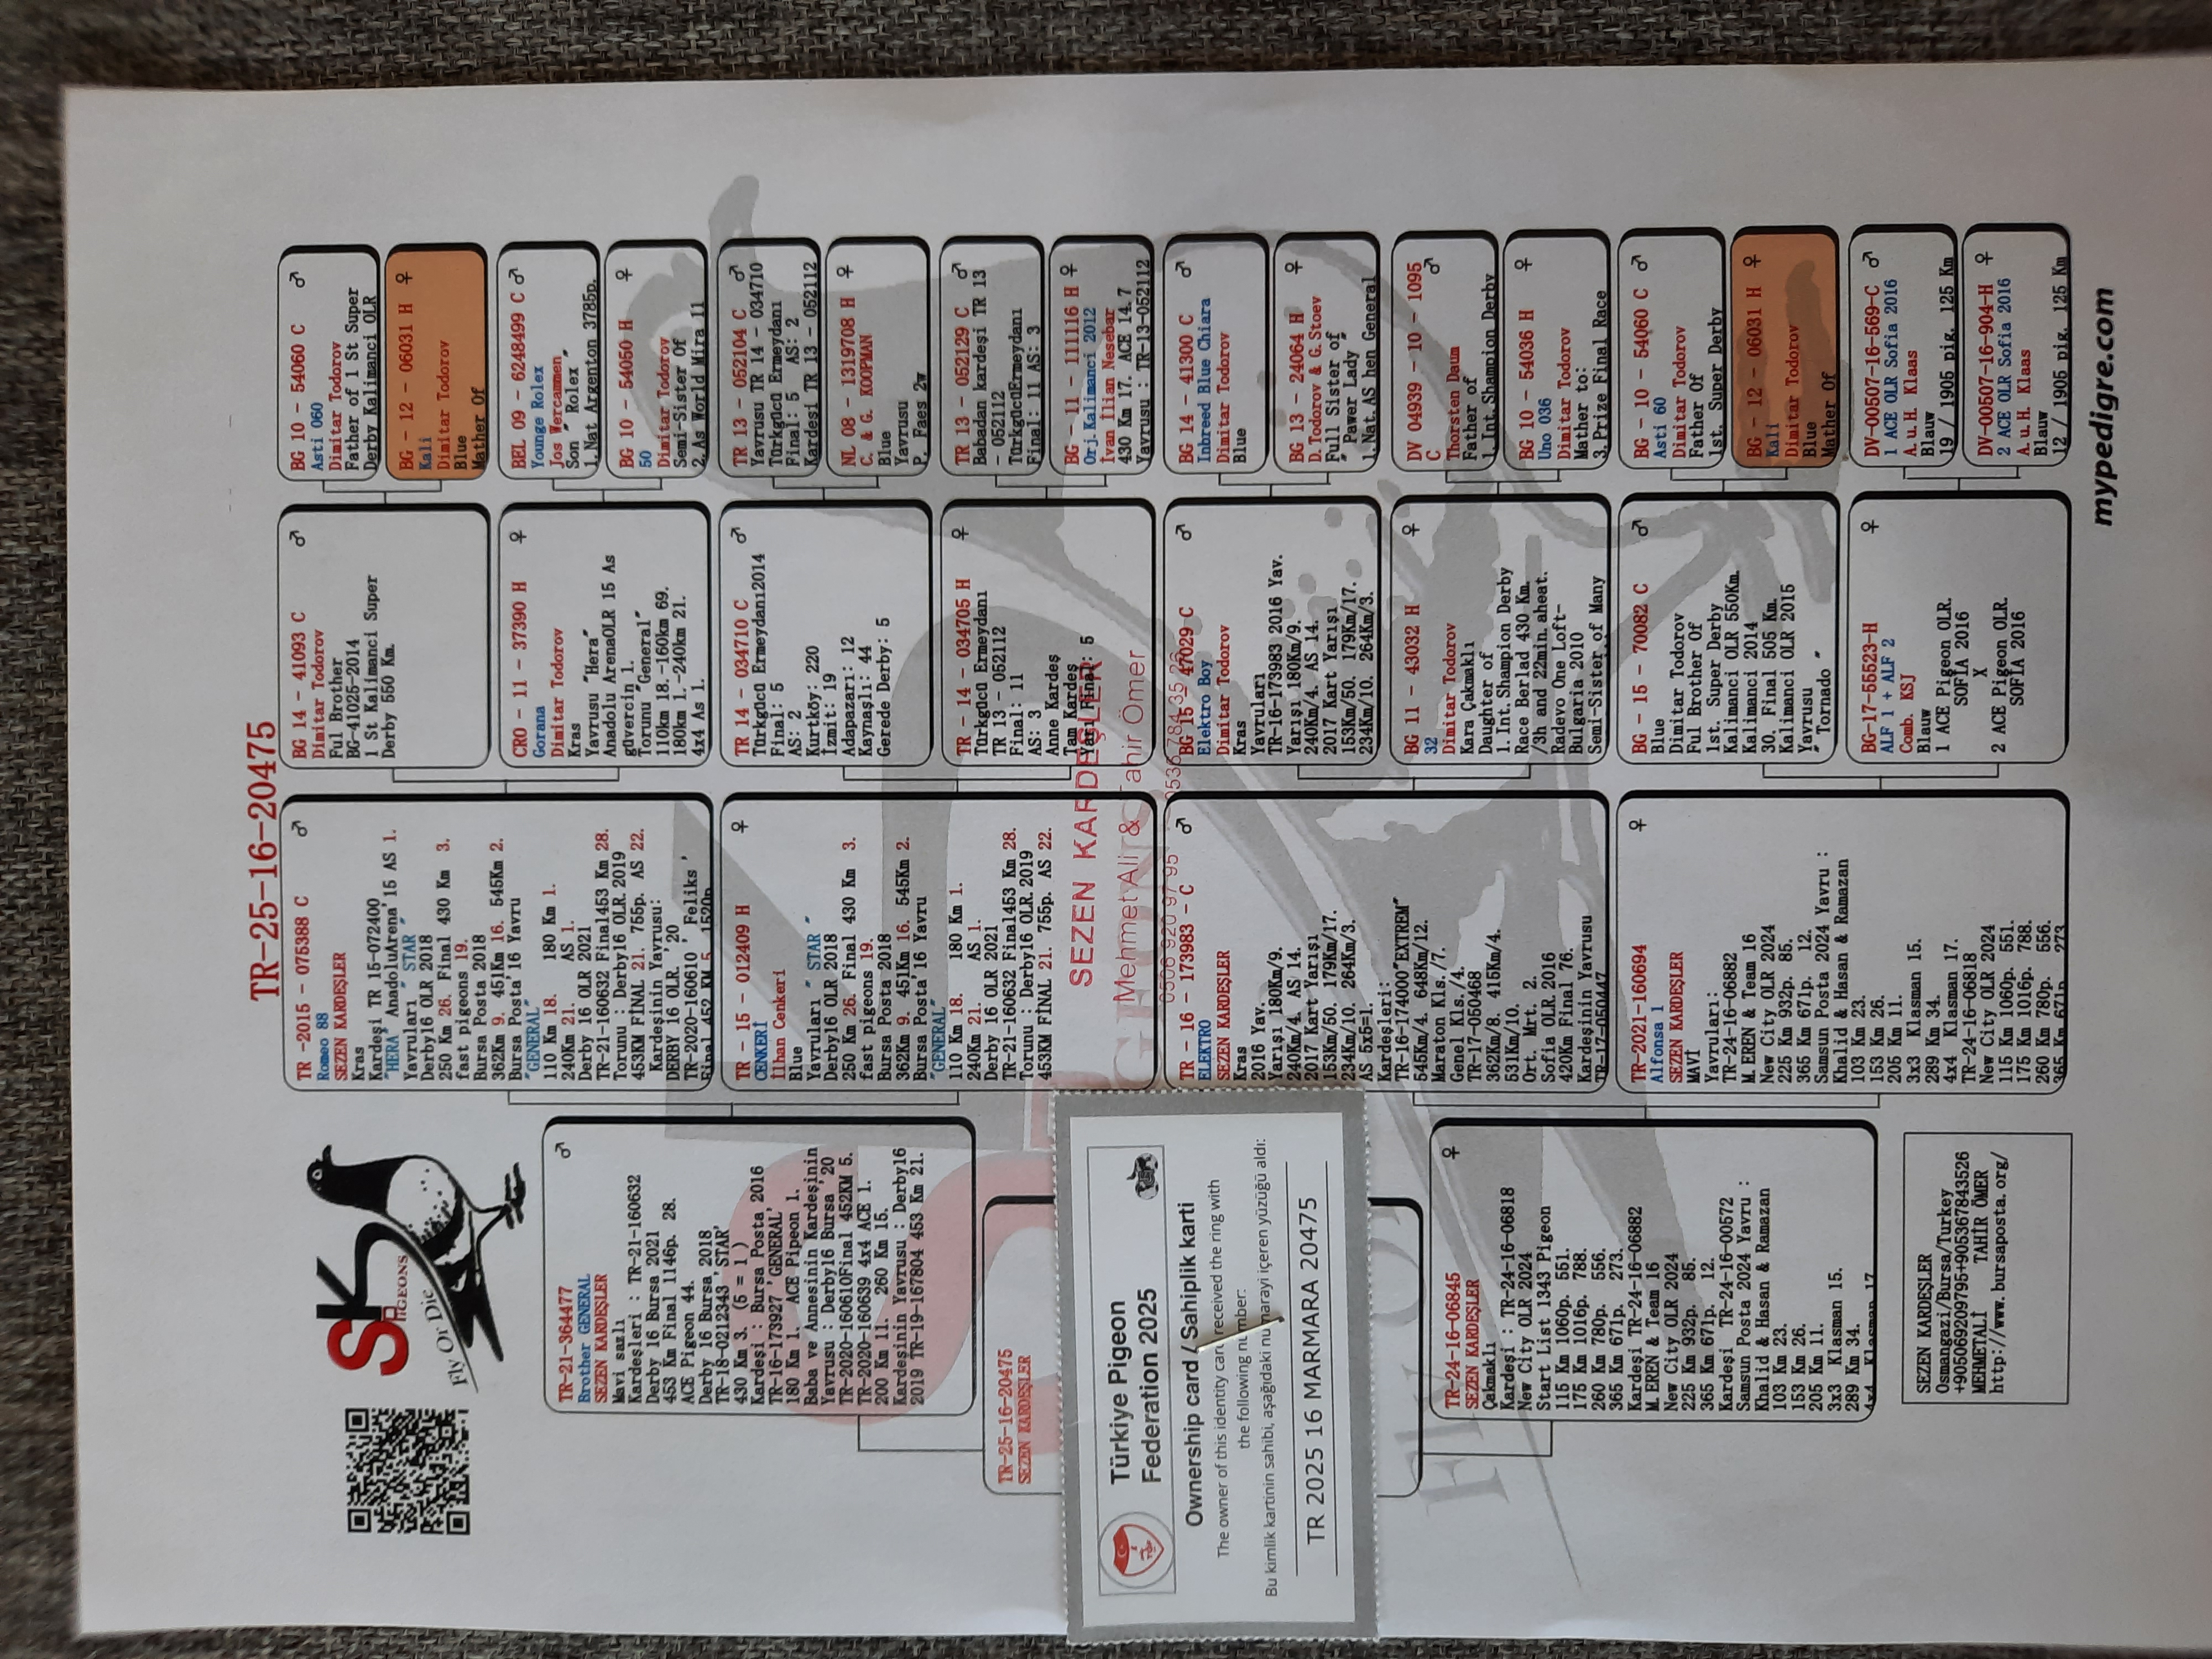 TR-25-16-20475
SK
PIGEONS
Fly Or Die
TR-25-16-20475
SEZEN KARDEŞLER
Türkiye Pigeon
Federation 2025
Ownership card / Sahiplik karti
The owner of this identity card received the ring with
the following number:
Bu kimlik kartinin sahibi, aşağıdaki numarayi içeren yüzüğü aldı:
TR 2025 16 MARMARA 20475
TR-21-364477 ♂
Brother GENERAL
SEZEN KARDEŞLER
Mavi sazlı
Kardeşleri : TR-21-160632
Derby 16 Bursa 2021
453 Km Final 1146p. 28.
ACE Pigeon 44.
Derby 16 Bursa 2018
TR-18-0212343'STAR'
430 Km 3. (5 = 1 )
Kardeşi : Bursa Posta 2016
TR-16-173927'GENERAL'
180 Km 1. ACE Pipeon 1.
Baba ve Annesinin Kardeşinin
Yavrusu : Derby16 Bursa '20
TR-2020-160610Final 452KM 5.
TR-2020-160639 4x4 ACE 1.
200 Km 11. 260 Km 15.
Kardeşinin Yavrusu : Derby16
2019 TR-19-167804 453 Km 21.
TR-24-16-06845 ♀
SEZEN KARDEŞLER
Çakmaklı
Kardeşi : TR-24-16-06818
New City OLR 2024
Start List 1343 Pigeon
115 Km 1060p. 551.
175 Km 1016p. 788.
260 Km 780p. 556.
365 Km 671p. 273.
Kardeşi TR-24-16-06882
M.EREN & Team 16
New City OLR 2024
225 Km 932p. 85.
365 Km 671p. 12.
Kardeşi TR-24-16-00572
Samsun Posta 2024 Yavru :
Khalid & Hasan & Ramazan
103 Km 23.
153 Km 26.
205 Km 11.
3x3 Klasman 15.
289 Km 34.
4x4 Klasman 17
SEZEN KARDEŞLER
Osmangazi/Bursa/Turkey
+905069209795+905367843526
MEHMETALİ TAHIR ÖMER
http://www.bursaposta.org/
TR -2015 - 075388 C ♂
Romeo 88
SEZEN KARDEŞLER
Kras
Kardeşi TR 15-072400
"HERA"AnadoluArena'15 AS 1.
Yavruları "STAR"
Derby16 OLR 2018
250 Km 26. Final 430 Km 3.
fast pigeons 19.
Bursa Posta 2018
362Km 9. 451Km 16. 545Km 2.
Bursa Posta'16 Yavru
"GENERAL"
110 Km 18. 180 Km 1.
240Km 21. AS 1.
Derby 16 OLR 2021
TR-21-160632 Final453 Km 28.
Torunu : Derby16 OLR. 2019
453KM FİNAL 21. 755p. AS 22.
Kardeşinin Yavrusu:
DERBY 16 OLR. '20
TR-2020-160610 ' Feliks '
Final 452 KM 5. 1520p
TR - 15 - 012409 H ♀
CENKERİ
İlhan Cenkeri
Blue
Yavruları "STAR"
Derby16 OLR 2018
250 Km 26. Final 430 Km 3.
fast pigeons 19.
Bursa Posta 2018
362Km 9. 451Km 16. 545Km 2.
Bursa Posta'16 Yavru
"GENERAL"
110 Km 18. 180 Km 1.
240Km 21. AS 1.
Derby 16 OLR 2021
TR-21-160632 Final453 Km 28.
Torunu : Derby16 OLR. 2019
453KM FİNAL 21. 755p. AS 22.
SEZEN KARDEŞLER
Mehmet Ali & Tahir Ömer
0506 920 97 95 - 0536 784 35 26
TR - 16 - 173983 - C ♂
ELEKTRO
SEZEN KARDEŞLER
Kras
2016 Yav.
Yarışı 180Km/9.
240Km/4. AS 14.
2017 Kart Yarışı
153Km/50. 179Km/17.
234Km/10. 264Km/3.
AS 5x5=1.
Kardeşleri:
TR-16-174000"EXTREM"
545Km/4. 648Km/12.
Maraton Kls./7.
Genel Kls./4.
TR-17-050468
362Km/8. 415Km/4.
531Km/10.
Ort. Mrt. 2.
Sofia OLR 2016
420Km Final 76.
Kardeşinin Yavrusu
TR-17-050447
TR-2021-160694 ♀
Alfonsa 1
SEZEN KARDEŞLER
MAVİ
Yavruları:
TR-24-16-06882
M.EREN & Team 16
New City OLR 2024
225 Km 932p. 85.
365 Km 671p. 12.
Samsun Posta 2024 Yavru :
Khalid & Hasan & Ramazan
103 Km 23.
153 Km 26.
205 Km 11.
3x3 Klasman 15.
289 Km 34.
4x4 Klasman 17.
TR-24-16-06818
New City OLR 2024
115 Km 1060p. 551.
175 Km 1016p. 788.
260 Km 780p. 556.
365 Km 671p 273
BG 14 - 41093 C ♂
Dimitar Todorov
Ful Brother
BG-41025-2014
1 St Kalimanci Super
Derby 550 Km.
CRO - 11 - 37390 H ♀
Gorana
Dimitar Todorov
Kras
Yavrusu "Hera"
Anadolu ArenaOLR 15 As
güvercin 1.
Torunu "General"
110km 18.-160km 69.
180km 1.-240km 21.
4x4 As 1.
TR 14 - 034710 C ♂
Türkgücü Ermeydanı2014
Final: 5
AS: 2
Kurtköy: 220
İzmit: 19
Adapazarı: 12
Kaynaşlı: 44
Gerede Derby: 5
TR - 14 - 034705 H ♀
Türkgücü Ermeydanı
TR 13 - 052112
Final: 11
AS: 3
Anne Kardeş
Tam Kardeş
Yav. Final: 5
BG 15 - 47029 C ♂
Elektro Boy
Dimitar Todorov
Kras
Yavruları
TR-16-173983 2016 Yav.
Yarışı 180Km/9.
240Km/4. AS 14.
2017 Kart Yarışı
153Km/50. 179Km/17.
234Km/10. 264Km/3.
BG 11 - 43032 H ♀
32
Dimitar Todorov
Kara Çakmaklı
Daughter of
1. Int. Shampion Derby
Race Berlad 430 Km.
/3h and 22min. aheat.
Radevo One Loft-
Bulgaria 2010
Semi-Sister of Many
BG - 15 - 70082 C ♂
Blue
Dimitar Todorov
Ful Brother Of
1st. Super Derby
Kalimanci OLR 550Km.
Kalimanci 2014
30. Final 505 Km.
Kalimanci OLR 2015
Yavrusu
" Tornado "
BG-17-55523-H ♀
ALF 1 + ALF 2
Comb. KSJ
Blauw
1 ACE Pigeon OLR.
SOFIA 2016
X
2 ACE Pigeon OLR.
SOFIA 2016
BG 10 - 54060 C ♂
Asti 060
Dimitar Todorov
Father of 1 St Super
Derby Kalimanci OLR
BG - 12 - 06031 H ♀
Kali
Dimitar Todorov
Blue
Mather Of
BEL 09 - 6248499 C ♂
Younge Rolex
Jos Wercammen
Son " Rolex "
1.Nat Argenton 3785p.
BG 10 - 54050 H ♀
50
Dimitar Todorov
Semi-Sister Of
2.As World Mira 11
TR 13 - 052104 C ♂
Yavrusu TR 14 - 034710
Türkgücü Ermeydanı
Final: 5 AS: 2
Kardeşi TR 13 - 052112
NL 08 - 1319708 H ♀
C. & G. KOOPMAN
Blue
Yavrusu
P. Faes 2w
TR 13 - 052129 C ♂
Babadan kardeşi TR 13
- 052112
TürkgücüErmeydanı
Final: 11 AS: 3
BG - 11 - 111116 H ♀
Orj.Kalimanci 2012
İvan İlian Nesebar
430 Km 17. ACE 14. 7
Yavrusu : TR-13-052112
BG 14 - 41300 C ♂
Inbreed Blue Chiara
Dimitar Todorov
Blue
BG 13 - 24064 H ♀
D.Todorov & G.Stoev
Full Sister of
" Pawer Lady "
1.Nat.AS hen General
DV 04939 - 10 - 1095
C ♂
Thorsten Daum
Father of
1.Int.Shampion Derby
BG 10 - 54036 H ♀
Uno 036
Dimitar Todorov
Mather to:
3.Prize Final Race
BG - 10 - 54060 C ♂
Asti 60
Dimitar Todorov
Father Of
1st. Super Derby
BG - 12 - 06031 H ♀
Kali
Dimitar Todorov
Blue
Mather Of
DV-00507-16-569-C ♂
1 ACE OLR Sofia 2016
A. u. H. Klaas
Blauw
19 / 1905 pig. 125 Km
DV-00507-16-904-H ♀
2 ACE OLR Sofia 2016
A. u. H. Klaas
Blauw
12 / 1905 pig. 125 Km
mypedigre.com